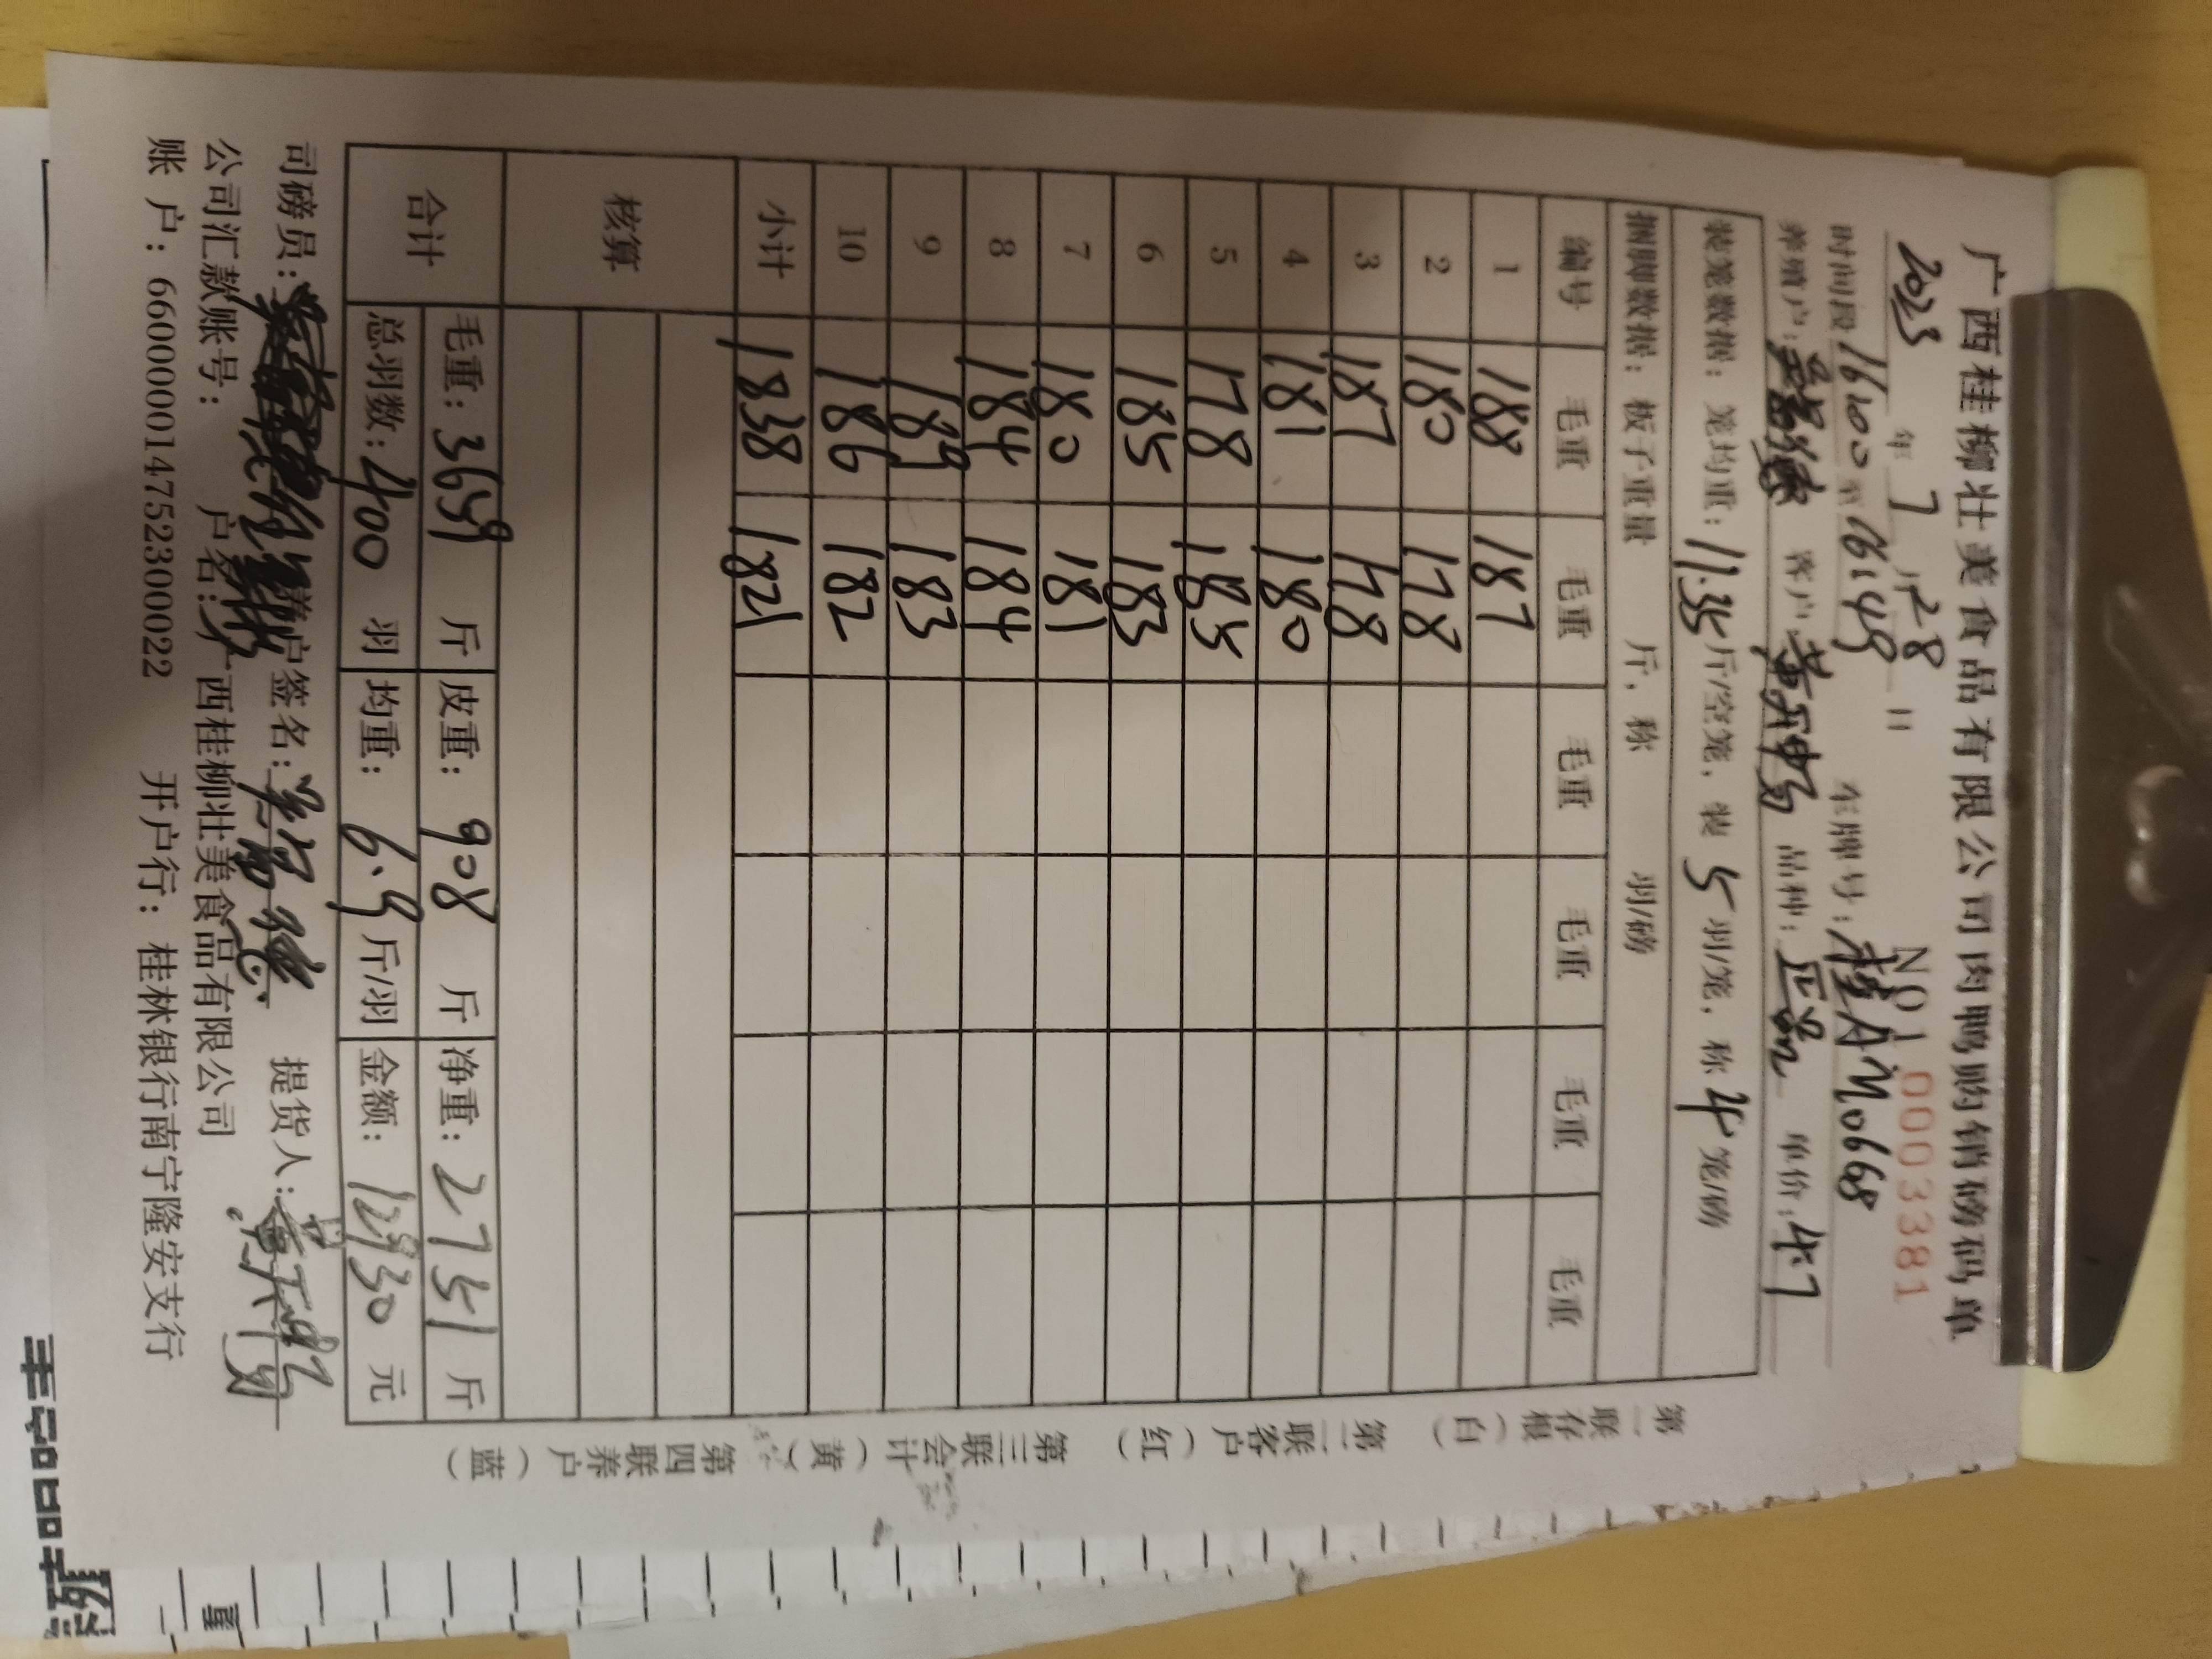 广西桂柳壮美食品有限公司肉鸭购销磅码单
NO1 0003381
2023 年 7 月 28 日 车牌号：桂AM0668
时间段 16:00 至 16:49
养殖户： 客户 品种：正品 单价：4.7
装笼数据：笼均重：11.35斤/空笼，装 5 羽/笼，称 4 笼/磅
捆脚数据：板子重量 斤，称 羽/磅
编号 毛重 毛重 毛重 毛重 毛重 毛重
1 188 187
2 180 178
3 187 178
4 181 180
5 178 185
6 185 183
7 180 181
8 184 184
9 189 183
10 186 182
小计 1838 1821
核算
合计 毛重：3659 斤 皮重：908 斤 净重：2751 斤
总羽数：400 羽 均重：6.9 斤/羽 金额：12930 元
司磅员： 养户签名： 提货人：
公司汇款账号： 户名：广西桂柳壮美食品有限公司
账 户：660000014752300022 开户行：桂林银行南宁隆安支行
第一联存根（白） 第二联客户（红） 第三联会计（黄） 第四联养户（蓝）